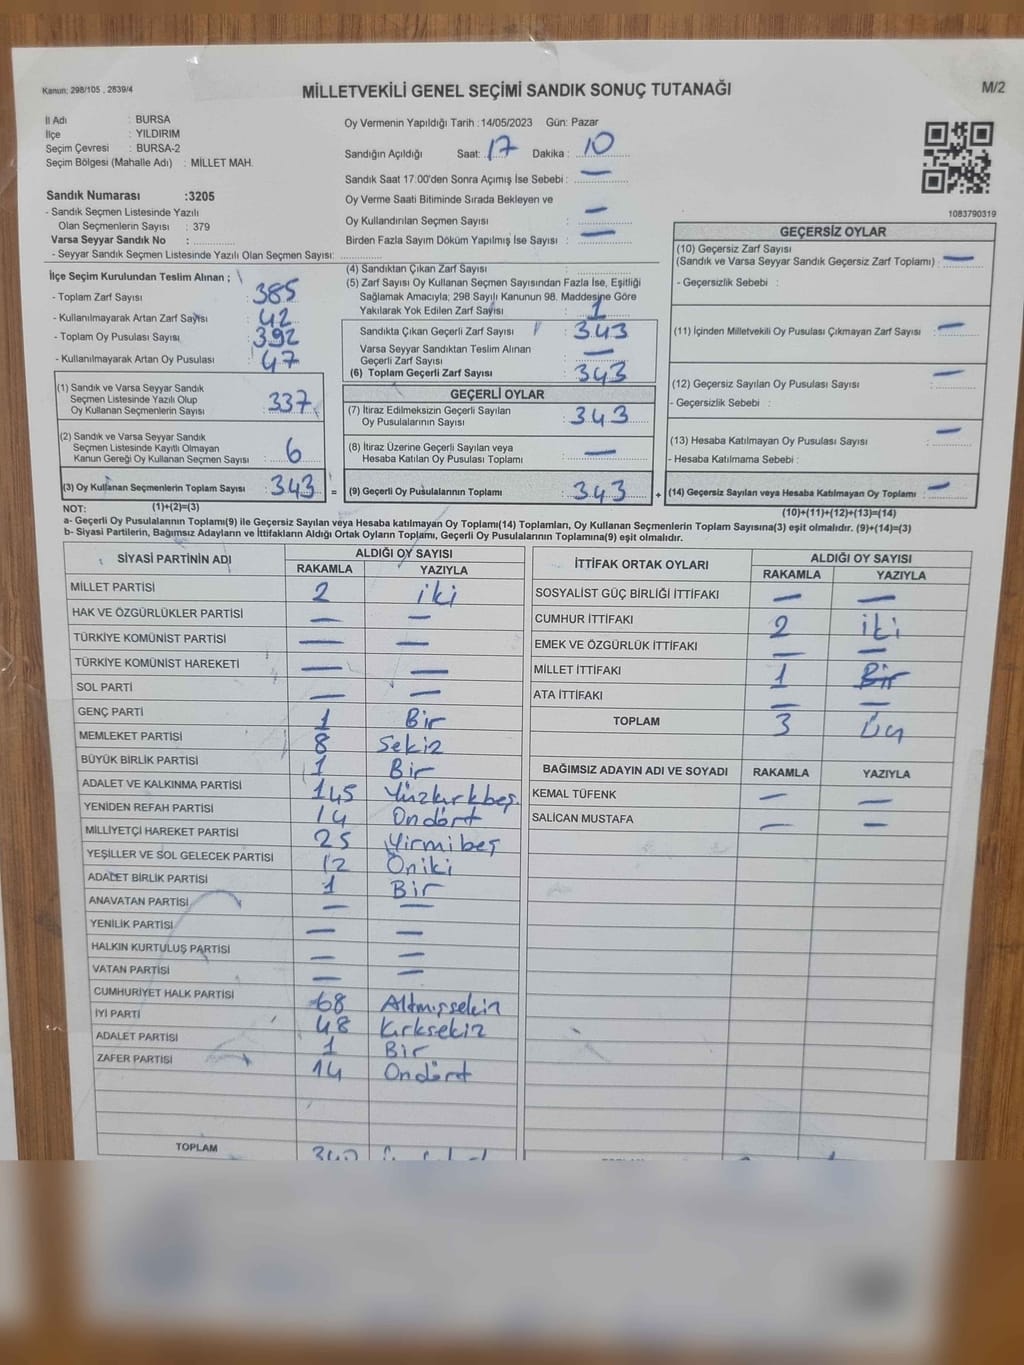 Kanun: 298/105 , 2839/4
MİLLETVEKİLİ GENEL SEÇİMİ SANDIK SONUÇ TUTANAĞI
M/2
İl Adı : BURSA
İlçe : YILDIRIM
Seçim Çevresi : BURSA-2
Seçim Bölgesi (Mahalle Adı) : MİLLET MAH.
Sandık Numarası :3205
- Sandık Seçmen Listesinde Yazılı
Olan Seçmenlerin Sayısı : 379
Varsa Seyyar Sandık No :
- Seyyar Sandık Seçmen Listesinde Yazılı Olan Seçmen Sayısı:
Oy Vermenin Yapıldığı Tarih :14/05/2023 Gün: Pazar
Sandığın Açıldığı Saat: 17 Dakika : 10
Sandık Saat 17:00'den Sonra Açımış İse Sebebi : —
Oy Verme Saati Bitiminde Sırada Bekleyen ve
Oy Kullandırılan Seçmen Sayısı : —
Birden Fazla Sayım Döküm Yapılmış İse Sayısı : —
1083790319
İlçe Seçim Kurulundan Teslim Alınan ;
- Toplam Zarf Sayısı : 385
- Kullanılmayarak Artan Zarf Sayısı : 42
- Toplam Oy Pusulası Sayısı : 392
- Kullanılmayarak Artan Oy Pusulası : 47
(1) Sandık ve Varsa Seyyar Sandık
Seçmen Listesinde Yazılı Olup
Oy Kullanan Seçmenlerin Sayısı : 337
(2) Sandık ve Varsa Seyyar Sandık
Seçmen Listesinde Kayıtlı Olmayan
Kanun Gereği Oy Kullanan Seçmen Sayısı : 6
(3) Oy Kullanan Seçmenlerin Toplam Sayısı : 343 =
(4) Sandıktan Çıkan Zarf Sayısı :
(5) Zarf Sayısı Oy Kullanan Seçmen Sayısından Fazla İse, Eşitliği
Sağlamak Amacıyla; 298 Sayılı Kanunun 98. Maddesine Göre
Yakılarak Yok Edilen Zarf Sayısı : 1
Sandıkta Çıkan Geçerli Zarf Sayısı : 343
Varsa Seyyar Sandıktan Teslim Alınan
Geçerli Zarf Sayısı : —
(6) Toplam Geçerli Zarf Sayısı : 343
GEÇERLİ OYLAR
(7) İtiraz Edilmeksizin Geçerli Sayılan
Oy Pusulalarının Sayısı : 343
(8) İtiraz Üzerine Geçerli Sayılan veya
Hesaba Katılan Oy Pusulası Toplamı : —
(9) Geçerli Oy Pusulalarının Toplamı : 343 +
GEÇERSİZ OYLAR
(10) Geçersiz Zarf Sayısı
(Sandık ve Varsa Seyyar Sandık Geçersiz Zarf Toplamı) : —
- Geçersizlik Sebebi :
(11) İçinden Milletvekili Oy Pusulası Çıkmayan Zarf Sayısı : —
(12) Geçersiz Sayılan Oy Pusulası Sayısı : —
- Geçersizlik Sebebi :
(13) Hesaba Katılmayan Oy Pusulası Sayısı : —
- Hesaba Katılmama Sebebi :
(14) Geçersiz Sayılan veya Hesaba Katılmayan Oy Toplamı : —
NOT: (1)+(2)=(3) (10)+(11)+(12)+(13)=(14)
a- Geçerli Oy Pusulalarının Toplamı(9) ile Geçersiz Sayılan veya Hesaba katılmayan Oy Toplamı(14) Toplamları, Oy Kullanan Seçmenlerin Toplam Sayısına(3) eşit olmalıdır. (9)+(14)=(3)
b- Siyasi Partilerin, Bağımsız Adayların ve İttifakların Aldığı Ortak Oyların Toplamı, Geçerli Oy Pusulalarının Toplamına(9) eşit olmalıdır.
SİYASİ PARTİNİN ADI ALDIĞI OY SAYISI
RAKAMLA YAZIYLA
MİLLET PARTİSİ 2 iki
HAK VE ÖZGÜRLÜKLER PARTİSİ — —
TÜRKİYE KOMÜNİST PARTİSİ — —
TÜRKİYE KOMÜNİST HAREKETİ — —
SOL PARTİ — —
GENÇ PARTİ 1 Bir
MEMLEKET PARTİSİ 8 Sekiz
BÜYÜK BİRLİK PARTİSİ 1 Bir
ADALET VE KALKINMA PARTİSİ 145 Yüzkırkbeş
YENİDEN REFAH PARTİSİ 14 Ondört
MİLLİYETÇİ HAREKET PARTİSİ 25 Yirmibeş
YEŞİLLER VE SOL GELECEK PARTİSİ 12 Oniki
ADALET BİRLİK PARTİSİ 1 Bir
ANAVATAN PARTİSİ — —
YENİLİK PARTİSİ — —
HALKIN KURTULUŞ PARTİSİ — —
VATAN PARTİSİ — —
CUMHURİYET HALK PARTİSİ 68 Altmışsekiz
İYİ PARTİ 48 Kırksekiz
ADALET PARTİSİ 1 Bir
ZAFER PARTİSİ 14 Ondört
TOPLAM 340
İTTİFAK ORTAK OYLARI ALDIĞI OY SAYISI
RAKAMLA YAZIYLA
SOSYALİST GÜÇ BİRLİĞİ İTTİFAKI — —
CUMHUR İTTİFAKI 2 iki
EMEK VE ÖZGÜRLÜK İTTİFAKI — —
MİLLET İTTİFAKI 1 Bir
ATA İTTİFAKI — —
TOPLAM 3 Üç
BAĞIMSIZ ADAYIN ADI VE SOYADI RAKAMLA YAZIYLA
KEMAL TÜFENK — —
SALİCAN MUSTAFA — —